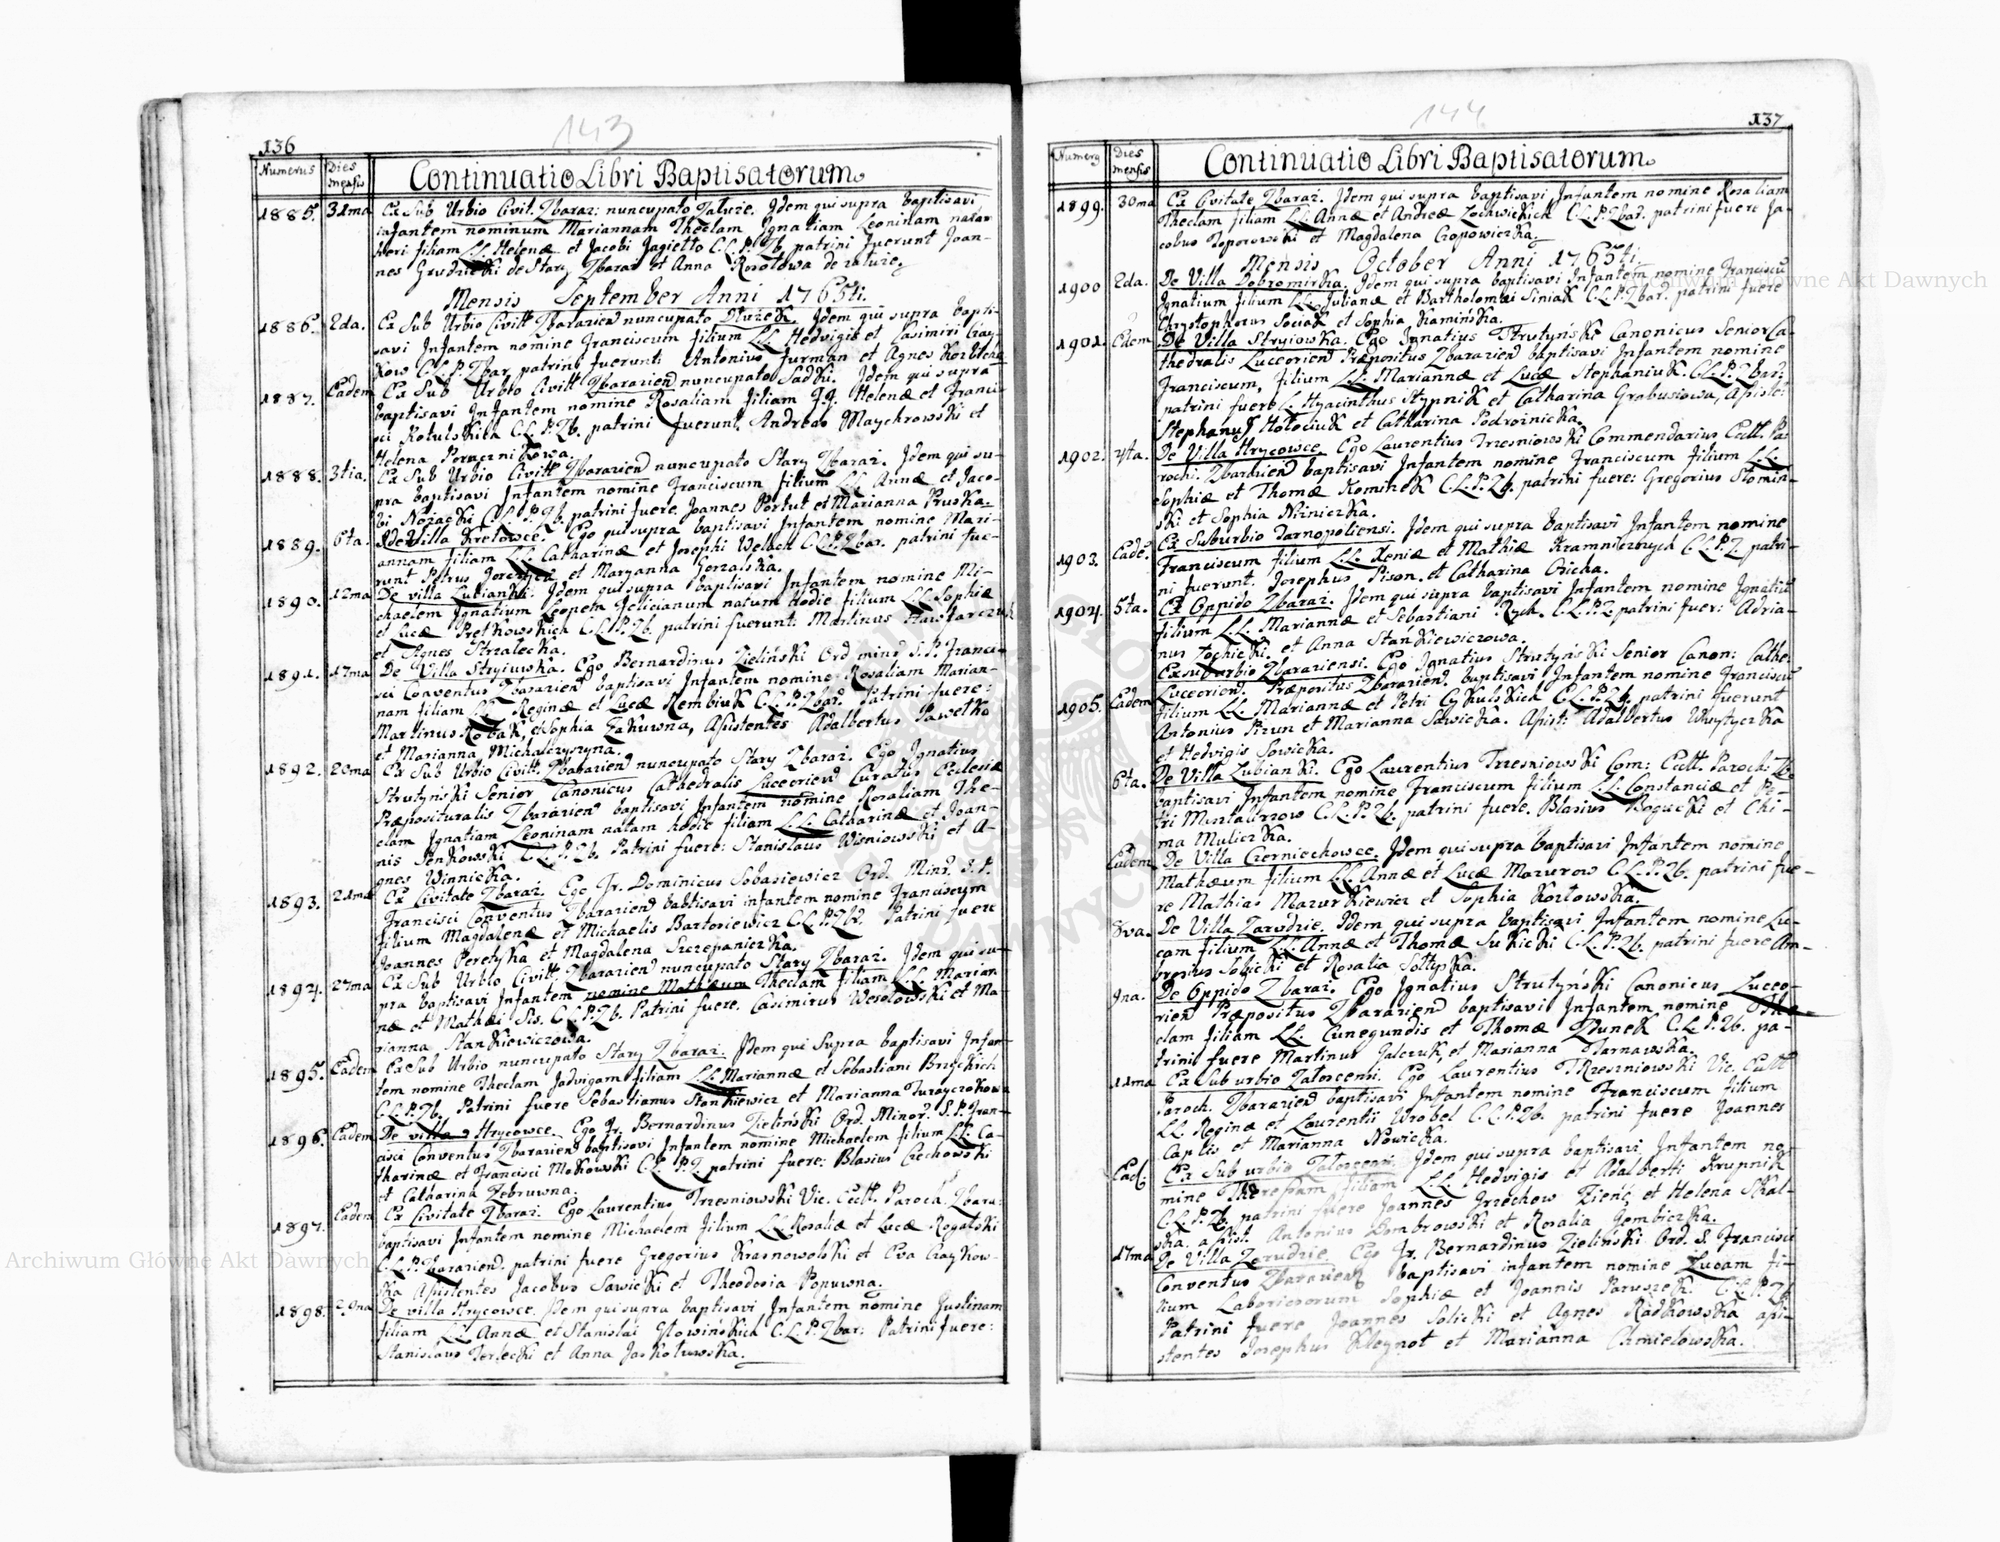 143
136
Numerus
Dies mensis
Continuatio Libri Baptisatorum
1885. 31ma Ex Sub Urbio Civit. Zbaraz: nuncupato Zaluze. Idem qui supra baptisavi
infantem nominum Mariannam Theclam Ignatiam Leoninam natam
heri filiam LL. Helenæ et Jacobi Jagietto C.L.P.Zb. patrini fuerunt Joan-
nes Grudzicki de Stary Zbaraz et Anna Kozlowa de zaluze
Mensis September Anni 1765ti.
1886. 2da. Ex Sub Urbio Civitt Zbarazien nuncupato Dluzek. Idem qui supra bapti-
savi Infantem nomine Franciscum filium LL. Hedvigis et Casimiri Czay-
kow C.L.P.Zbar patrini fuerunt Antonius Furman et Agnes
1887. Eadem Ex Sub Urbio Civitt Zbarazien nuncupato Sadki. Idem qui supra
baptisavi Infantem nomine Rosaliam filiam Helenæ et Franci-
sci C.L.P.Zb. patrini fuerunt Andreas Maychrowski et
Helena
1888. 3tia. Ex Sub Urbio Civitt Zbarazien nuncupato Stary Zbaraz. Idem qui su-
pra baptisavi Infantem nomine Franciscum filium LL. Annæ et Jaco-
bi C.L.P.Zb. patrini fuere Joannes Portut et Marianna Pruska
1889. 6ta. De Villa Kretowce. Ego qui supra baptisavi Infantem nomine Mari-
annam filiam LL. Catharinæ et Josephi C.L.P.Zbar. patrini fue-
runt Petrus et Maryanna
1890. 12ma De villa Lubianki. Idem qui supra baptisavi Infantem nomine Mi-
chaelem Ignatium Felicianum natum Hodie filium LL. Sophiæ
et Lucæ C.L.P.Zb. patrini fuerunt: Martinus
et Agnes Strzalecka.
1891. 17ma De Villa Stryiuwka. Ego Bernardinus Zieliński Ord min S.P. Franci-
sci Conventus Zbarazien baptisavi Infantem nomine Rosaliam Marian-
nam filiam LL. Reginæ et Lucæ Rembiuk C.L.P.Zbar. Patrini fuere:
Martinus Robak, et Sophia Assistentes Adalbertus Pawelko
et Marianna Michalczyszyna.
1892. 20ma Ex Sub Urbio Civitt. Zbarazien nuncupato Stary Zbaraz. Ego Ignatius
Strutyński Senior Canonicus Cathedralis Luceorien Curatus Ecclesiæ
Præposituralis Zbarazien baptisavi Infantem nomine Rosaliam The-
clam Ignatiam Leoninam natam hodie filiam LL. Catharinæ et Joan-
nis Senkowski C.L.P.Zb. Patrini fuere: Stanislaus Wisniowski et A-
gnes Winnicka.
1893. 21ma Ex Civitate Zbaraz. Ego Fr. Dominicus Sobasiewicz Ord. Min. S.P.
Francisci Conventus Zbarazien baptisavi infantem nomine Franciscum
filium Magdalenæ et Michaelis Bartosiewicz C.L.P.Zb. Patrini fuere
Joannes Peretyka et Magdalena Szczepaniczka.
1894. 27ma Ex Sub Urbio Civitt. Zbarazien nuncupato Stary Zbaraz. Idem qui su-
pra baptisavi Infantem nomine Mathæum Theclam filiam LL. Marian
næ et Mathæi Sis. C.L.P.Zb. Patrini fuere. Casimirus Wesolowski et Ma-
rianna Stankiewiczowa.
1895. Eadem Ex Sub Urbio nuncupato Stary Zbaraz. Idem qui Supra baptisavi Infan-
tem nomine Theclam Jadvigam filiam LL. Mariannæ et Sebastiani
C.L.P.Zb. Patrini fuere Sebastianus Stankiewicz et Marianna
1896. Eadem De villa Hrycowce. Ego Fr. Bernardinus Zieliński Ord. Minor. S.P. Fran-
cisci Conventus Zbarazien baptisavi Infantem nomine Michaelem filium LL. Ca-
tharinæ et Francisci Makowski C.L.P.Z patrini fuere: Blasius Czechowski
et Catharina Zebruwna.
1897. Eadem Ex Civitate Zbaraz. Ego Laurentius Trzesniowski Vic. Ecctt. Paroch. Zbara:
baptisavi Infantem nomine Michaelem filium LL. Rosaliæ et Lucæ Rogalski
C.L.P.Zbarazien. patrini fuere Gregorius Krasnowolski et Eva Czaykow-
ska Assistentes Jacobus Sawicki et Theodosia Popuwna.
1898. 29na De villa Hrycowce. Idem qui supra baptisavi Infantem nomine Justinam
filiam LL. Annæ et Stanislai Glowińskich C.L.P.Zbar: Patrini fuere:
Stanislaus Terlecki et Anna Jaskoluwska.
144
137
Numerus
Dies mensis
Continuatio Libri Baptisatorum
1899. 30ma Ex Civitate Zbaraz. Idem qui supra baptisavi Infantem nomine Rosaliam
Theclam filiam LL. Annæ et Andreæ C.L.P.Zbar. patrini fuere Ja-
cobus Toporowski et Magdalena Czopowiczka.
Mensis October Anni 1765ti.
1900 2da. De Villa Dobromirka. Idem qui supra baptisavi Infantem nomine Franciscum
Ignatium filium LL. Julianæ et Bartholomæi Siniak C.L.P.Zbar. patrini fuere
Chrystophorus Sociak et Sophia Kamińska.
1901. Edem De Villa Stryiowka. Ego Ignatius Strutyński Canonicus Senior Ca-
thedralis Luceorien Præpositus Zbarazien baptisavi Infantem nomine
Franciscum, filium LL. Mariannæ et Lucæ Stephaniuk. C.L.P.Zbar:
patrini fuere L. Hyacinthus Stypnik et Catharina Grabusiowa, Assiste:
Stephanus Holociuk et Catharina Podrozniczka.
1902. 4ta. De Villa Hrycowce. Ego Laurentius Trzesniowski Commendarius Ecctt. Pa-
rochi. Zbarazien baptisavi Infantem nomine Franciscum filium LL.
Sophiæ et Thomæ Kominek C.L.P.Zb. patrini fuere: Gregorius Slomin-
ski et Sophia Nizniczka.
1903. Eade. Ex Suburbio Tarnopoliensi. Idem qui supra baptisavi Infantem nomine
Franciscum filium LL. Xeniæ et Mathiæ Kramniczonych C.L.P.Z. patri-
ni fuerunt. Josephus Pison. et Catharina Cricha.
1904. 5ta. Ex Oppido Zbaraz. Idem qui supra baptisavi Infantem nomine Ignatium
filium LL. Mariannæ et Sebastiani Rych. C.L.P.Z patrini fuer: Adria-
nus Zochicki. et Anna Stankiewiczowa.
1905. Eadem Ex suburbio Zbarariensi. Ego Ignatius Strutyński Senior Canon: Cathe.
Luceorien. Præpositus Zbarazien. baptisavi Infantem nomine Franciscum
filium LL. Mariannæ et Petri C.L.P.Zb. patrini fuerunt
Antonius Pizun et Marianna Sawicka. Assist: Adalbertus
et Hedvigis Sowicka.
6ta. De Villa Lubianki. Ego Laurentius Trzesniowski Com: Ecctt. Paroch: Zb
baptisavi Infantem nomine Franciscum filium LL. Constanciæ et Pe-
tri C.L.P.Zb. patrini fuere. Blasius Bogucki et Chi-
ma Muliczka.
Eadem De Villa Czerniechowce. Idem qui supra baptisavi Infantem nomine
Mathæum filium LL. Annæ et Lucæ Mazurow C.L.P.Zb. patrini fue-
re Mathias Mazurkiewicz et Sophia Kozlowska.
8va. De Villa Zarudzie. Idem qui supra baptisavi Infantem nomine Lu-
cam filium LL. Annæ et Thomæ Sukicki C.L.P.Zb. patrini fuere Am-
brosius Solicki et Rosalia Soltyska.
9na. De Oppido Zbaraz. Ego Ignatius Strutyński Canonicus Luceo-
rien Præpositus Zbarazien baptisavi Infantem nomine The-
clam filiam LL. Cunegundis et Thomæ Zrunek C.L.P.Zb. pa-
trini fuere Martinus Galczuk et Marianna Tarnawska.
11ma Ex Sub urbio Zaloscensi. Ego Laurentius Trzesniowski Vic. Ecctt
Paroch. Zbarazien baptisavi Infantem nomine Franciscum filium
LL. Reginæ et Laurentii Wrobel C.L.P.Zb. patrini fuere Joannes
Caplis et Marianna Nowicka.
Ead. Ex Sub urbio Zaloscensi. Idem qui supra baptisavi. Infantem no-
mine Theresiam filiam LL. Hedvigis et Adalberti Krupnik
C.L.P.Zb. patrini fuere Joannes Grzechow Zienć, et Helena Skal-
ska. assist. Antonius Dombrowski et Rosalia Gembiczka.
17ma De Villa Zerudzie. Ego Fr. Bernardinus Zieliński Ord. S. Francisci
Conventus Zbarazien baptisavi infantem nomine Lucam fi-
lium Laboriosorum Sophiæ et Joannis Paruszek. C.L.P.Zb.
Patrini fuere Joannes Solicki et Agnes Radkowska assi-
stentes Josephus Kleynot et Marianna Chmielowska.
Archiwum Główne Akt Dawnych
Archiwum Główne Akt Dawnych